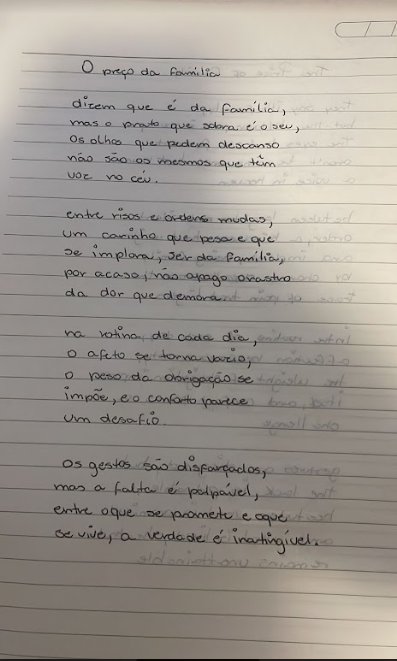 O preço da família
dizem que é da família,
mas o prato que sobra é o seu,
os olhos que pedem descanso
não são os mesmos que têm
voz no céu.
entre risos e ordens mudas,
um carinho que pesa e que
se implora, ser da família,
por acaso, não apaga o rastro
da dor que demora.
na rotina de cada dia,
o afeto se torna vazio,
o peso da obrigação se
impõe, e o conforto parece
um desafio.
os gestos são disfarçados,
mas a falta é palpável,
entre o que se promete e o que
se vive, a verdade é inatingível.